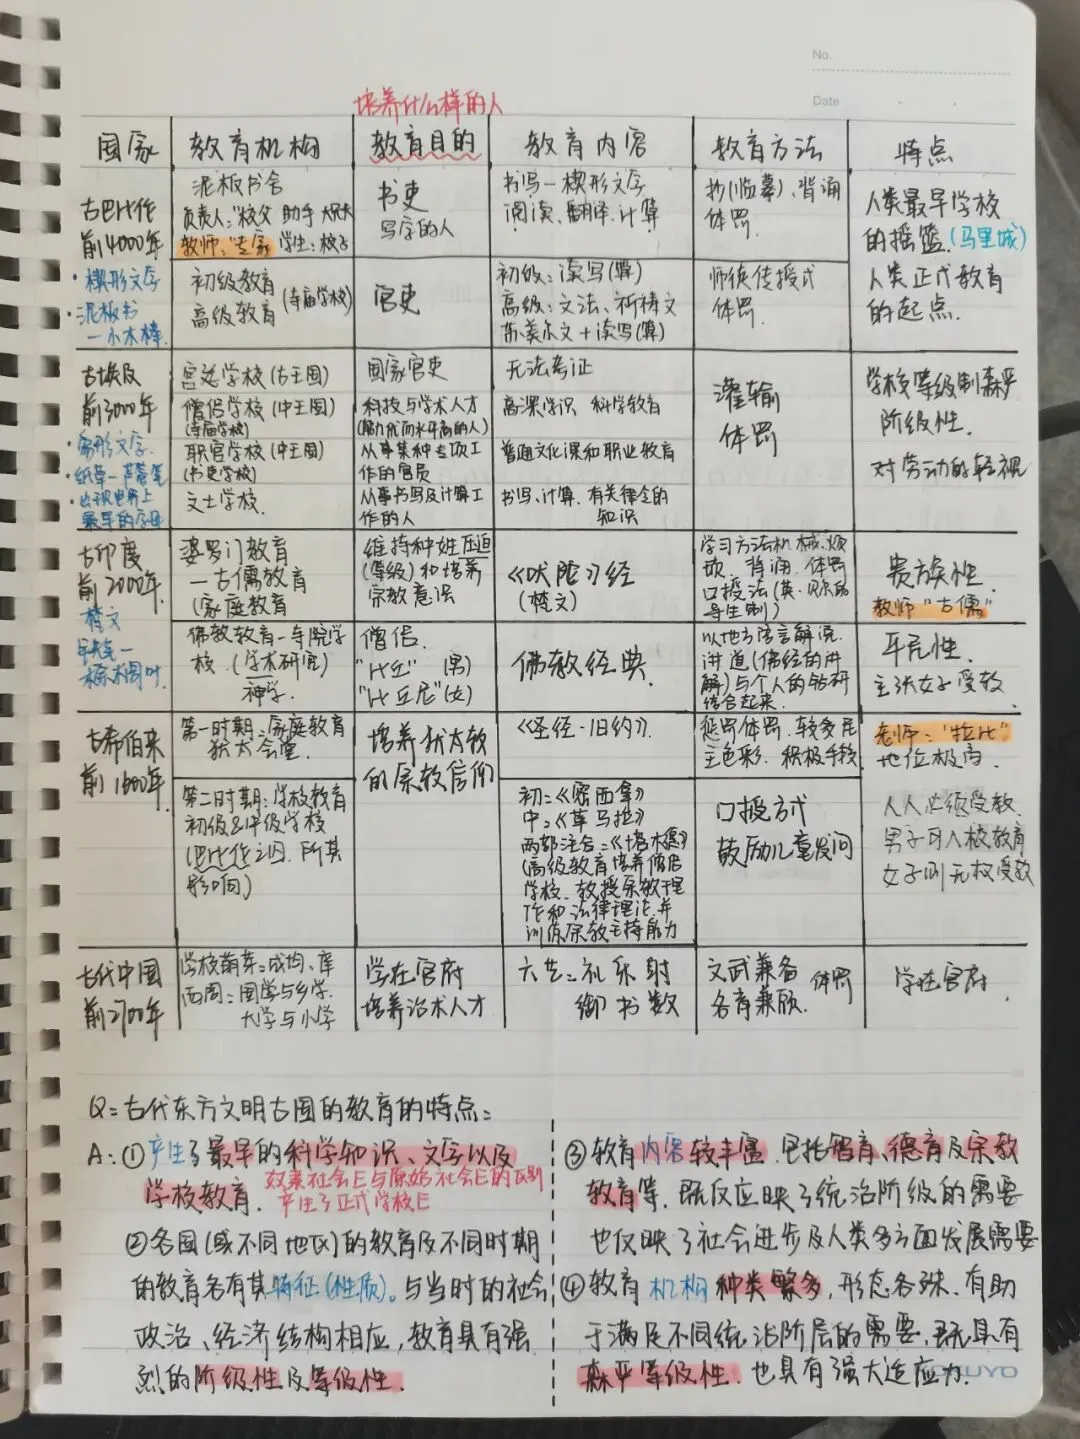 No.
Date
培养什么样的人
国家 教育机构 教育目的 教育内容 教育方法 特点
古巴比伦
前4000年
·楔形文字
·泥板书
一小木棒.
泥板书舍
负责人:"校父" 助手
教师:"专家" 学生:校子
书吏
写字的人
书写一楔形文字
阅读、翻译、计算
抄(临摹)、背诵
体罚
人类最早学校
的摇篮.(马里城)
人类正式教育
的起点.
初级教育
高级教育 (寺庙学校)
官吏
初级:读写(算)
高级:文法、祈祷文
苏美尔文+读写(算)
师徒传授式
体罚.
古埃及
前3000年
·象形文字.
·纸草一芦苇笔
·出现世界上
最早的字母
宫廷学校(古王国)
僧侣学校(中王国)
(寺庙学校)
职官学校(中王国)
(书吏学校)
文士学校.
国家官吏
科技与学术人才
(能力优而水平高的人)
从事某种专项工
作的官员
从事书写及计算工
作的人
无法考证
高深学识 科学教育
普通文化课和职业教育
书写、计算、有关律令的
知识
灌输
体罚
学校等级制森严
阶级性.
对劳动的轻视
古印度
前2000年.
梵文
婆罗门教育
一古儒教育
(家庭教育
维持种姓压迫
(等级)和培养
宗教意识
《吠陀》经
(梵文)
学习方法机械.烦
琐、背诵、体罚
口授法(英·贝尔的
导生制)
贵族性.
教师"古儒"
佛教教育一寺院学
校.(学术研究)
神学.
僧侣.
"比丘"(男)
"比丘尼"(女)
佛教经典.
以地方语言解说.
讲道(佛经的讲
解)与个人的钻研
结合起来.
平民性.
主张女子受教
古希伯来
前1600年.
第一时期:家庭教育
犹太会堂.
培养犹太教
的宗教信仰
《圣经·旧约》.
惩罚体罚.较多民
主色彩.积极手段
老师:"拉比"
地位极高.
第二时期:学校教育
初级&中级学校
(巴比伦之囚.所其
影响)
初:《密西拿》
中:《革马拉》
两部注合:《塔木德》
(高级教育培养僧侣
学校.教授宗教理
作和法律理论,并
训练宗教主持能力
口授方式
鼓励儿童发问
人人必须受教.
男子可入校教育
女子则无权受教
古代中国
前2700年
学校萌芽:成均、庠
西周:国学与乡学.
大学与小学
学在官府
培养治术人才
六艺:礼乐射
御书数
文武兼备
各育兼顾. 体罚
学在官府.
Q:古代东方文明古国的教育的特点:
A:①产生了最早的科学知识、文字以及
学校教育. 奴隶社会E与原始社会E的区别
产生了正式学校E
②各国(或不同地区)的教育及不同时期
的教育各有其特征(性质)。与当时的社会
政治、经济结构相应,教育具有强
烈的阶级性及等级性.
③教育内容较丰富.包括智育、德育及宗教
教育等.既反应映了统治阶级的需要
也反映了社会进步及人类多方面发展需要
④教育机构种类繁多,形态各殊.有助
于满足不同统治阶层的需要.既具有
森严等级性.也具有强大适应力.